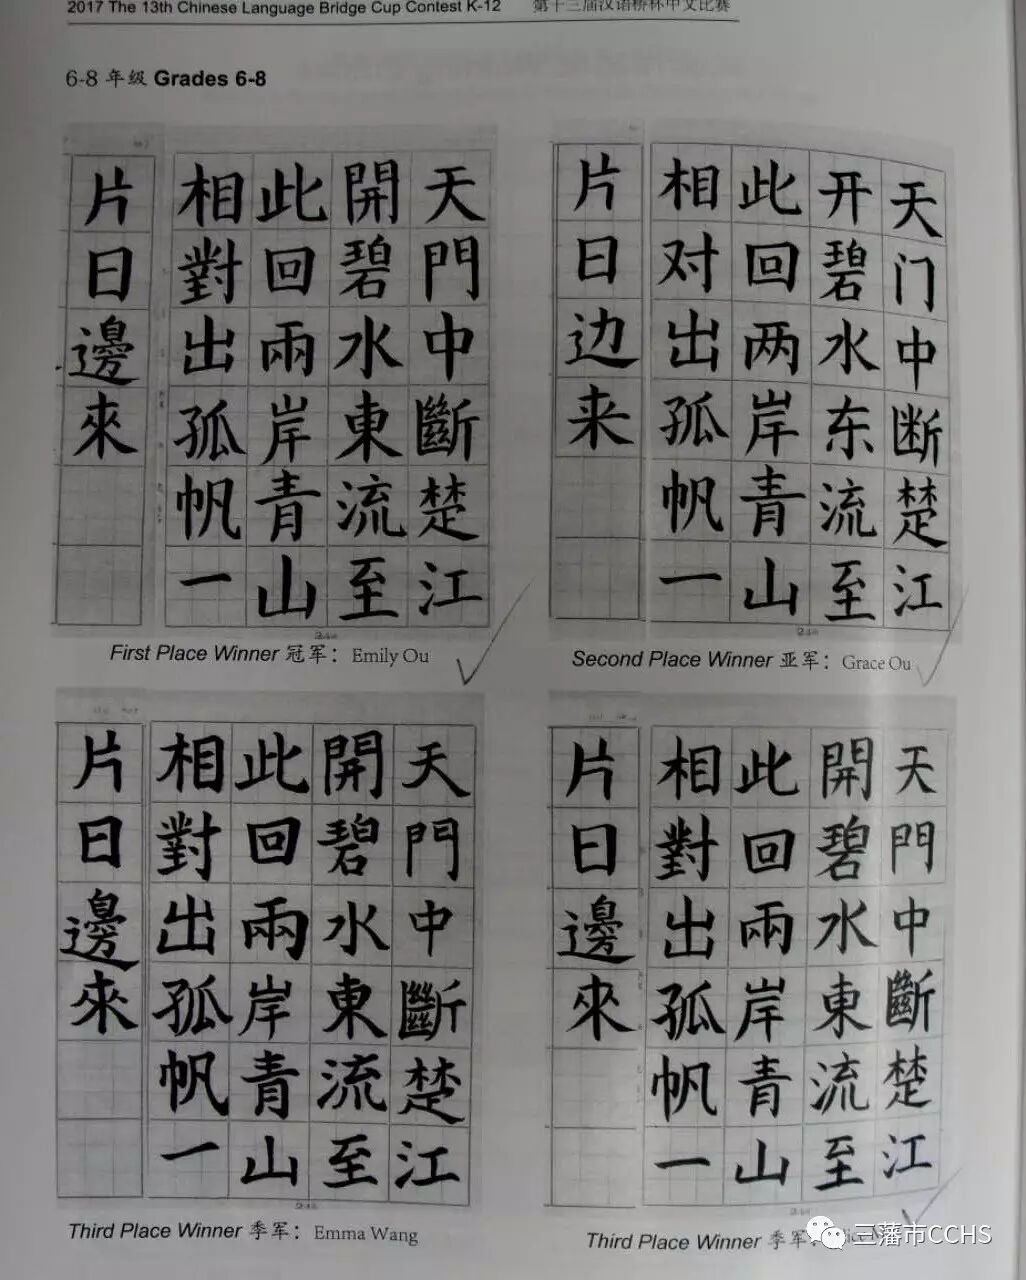 2017 The 13th Chinese Language Bridge Cup Contest K-12 第十三届汉语桥杯中文比赛
6-8 年级 Grades 6-8
天門中斷楚江
開碧水東流至
此回兩岸青山
相對出孤帆一
片日邊來
First Place Winner 冠军： Emily Ou
天门中断楚江
开碧水东流至
此回两岸青山
相对出孤帆一
片日边来
Second Place Winner 亚军： Grace Ou
天門中斷楚江
開碧水東流至
此回兩岸青山
相對出孤帆一
片日邊來
Third Place Winner 季军： Emma Wang
天門中斷楚江
開碧水東流至
此回兩岸青山
相對出孤帆一
片日邊來
Third Place Winner 季军：
三藩市CCHS